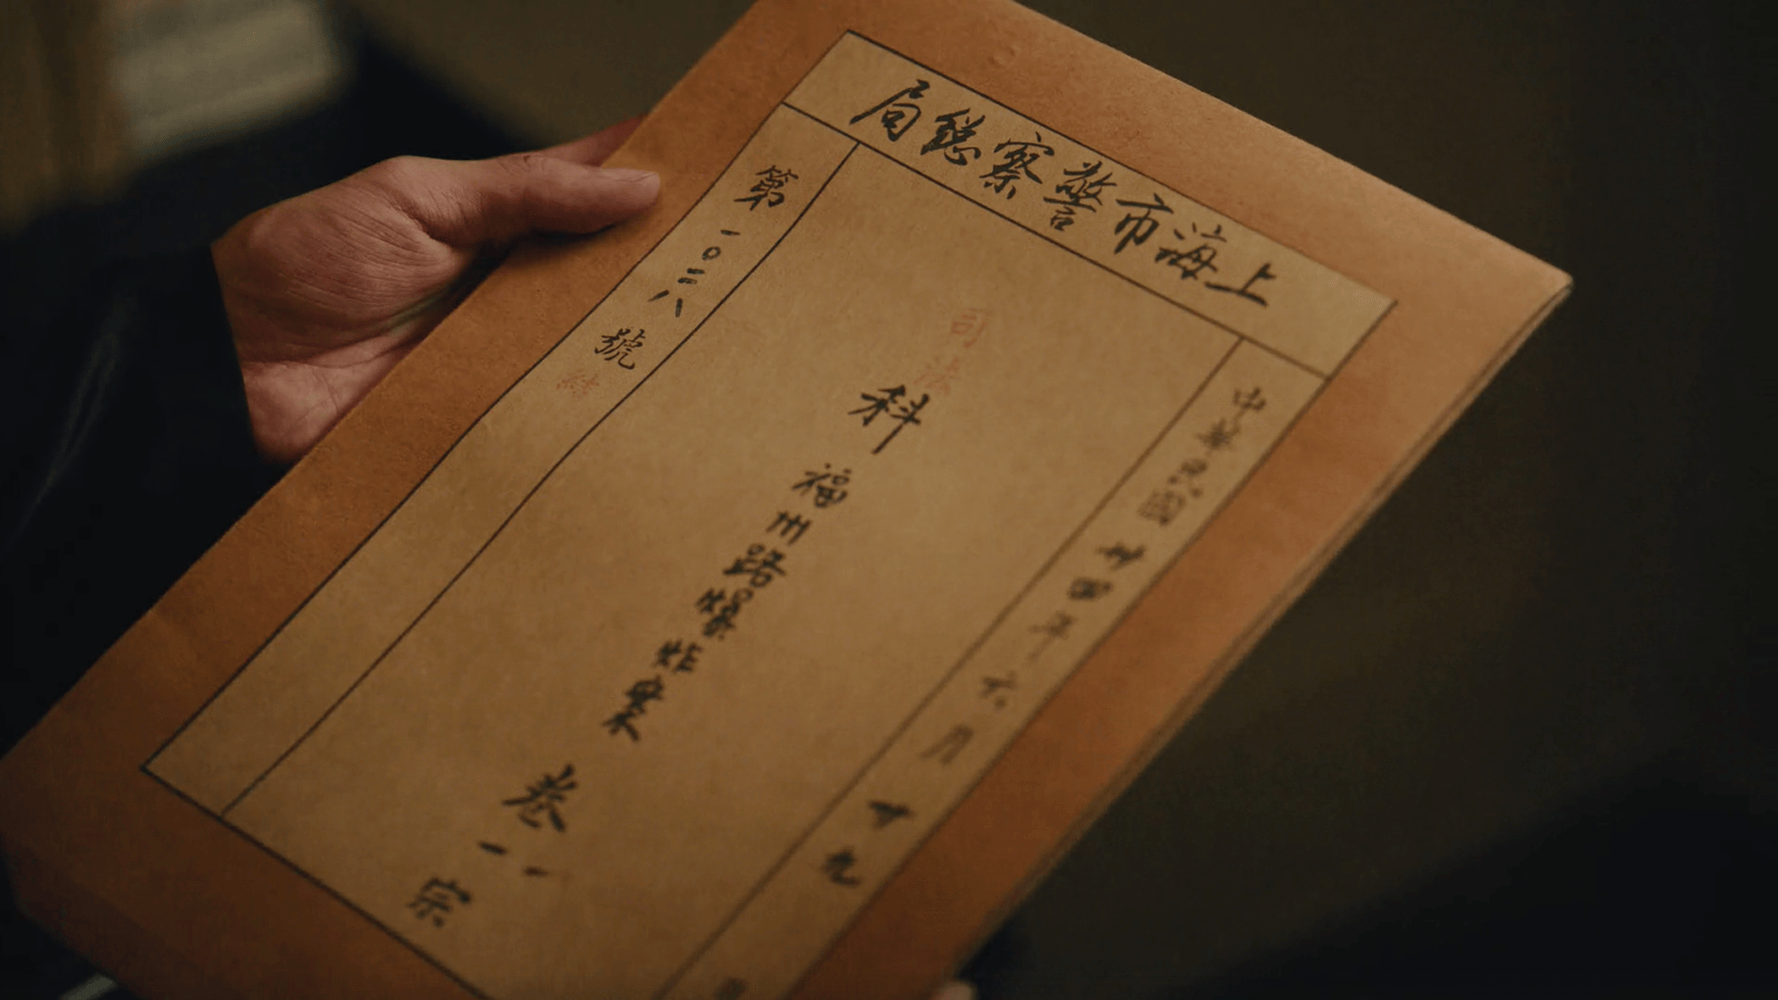 上海市警察總局
中華民國廿四年六月廿九
司法科 福州路爆炸案 卷一宗
第一〇二八號